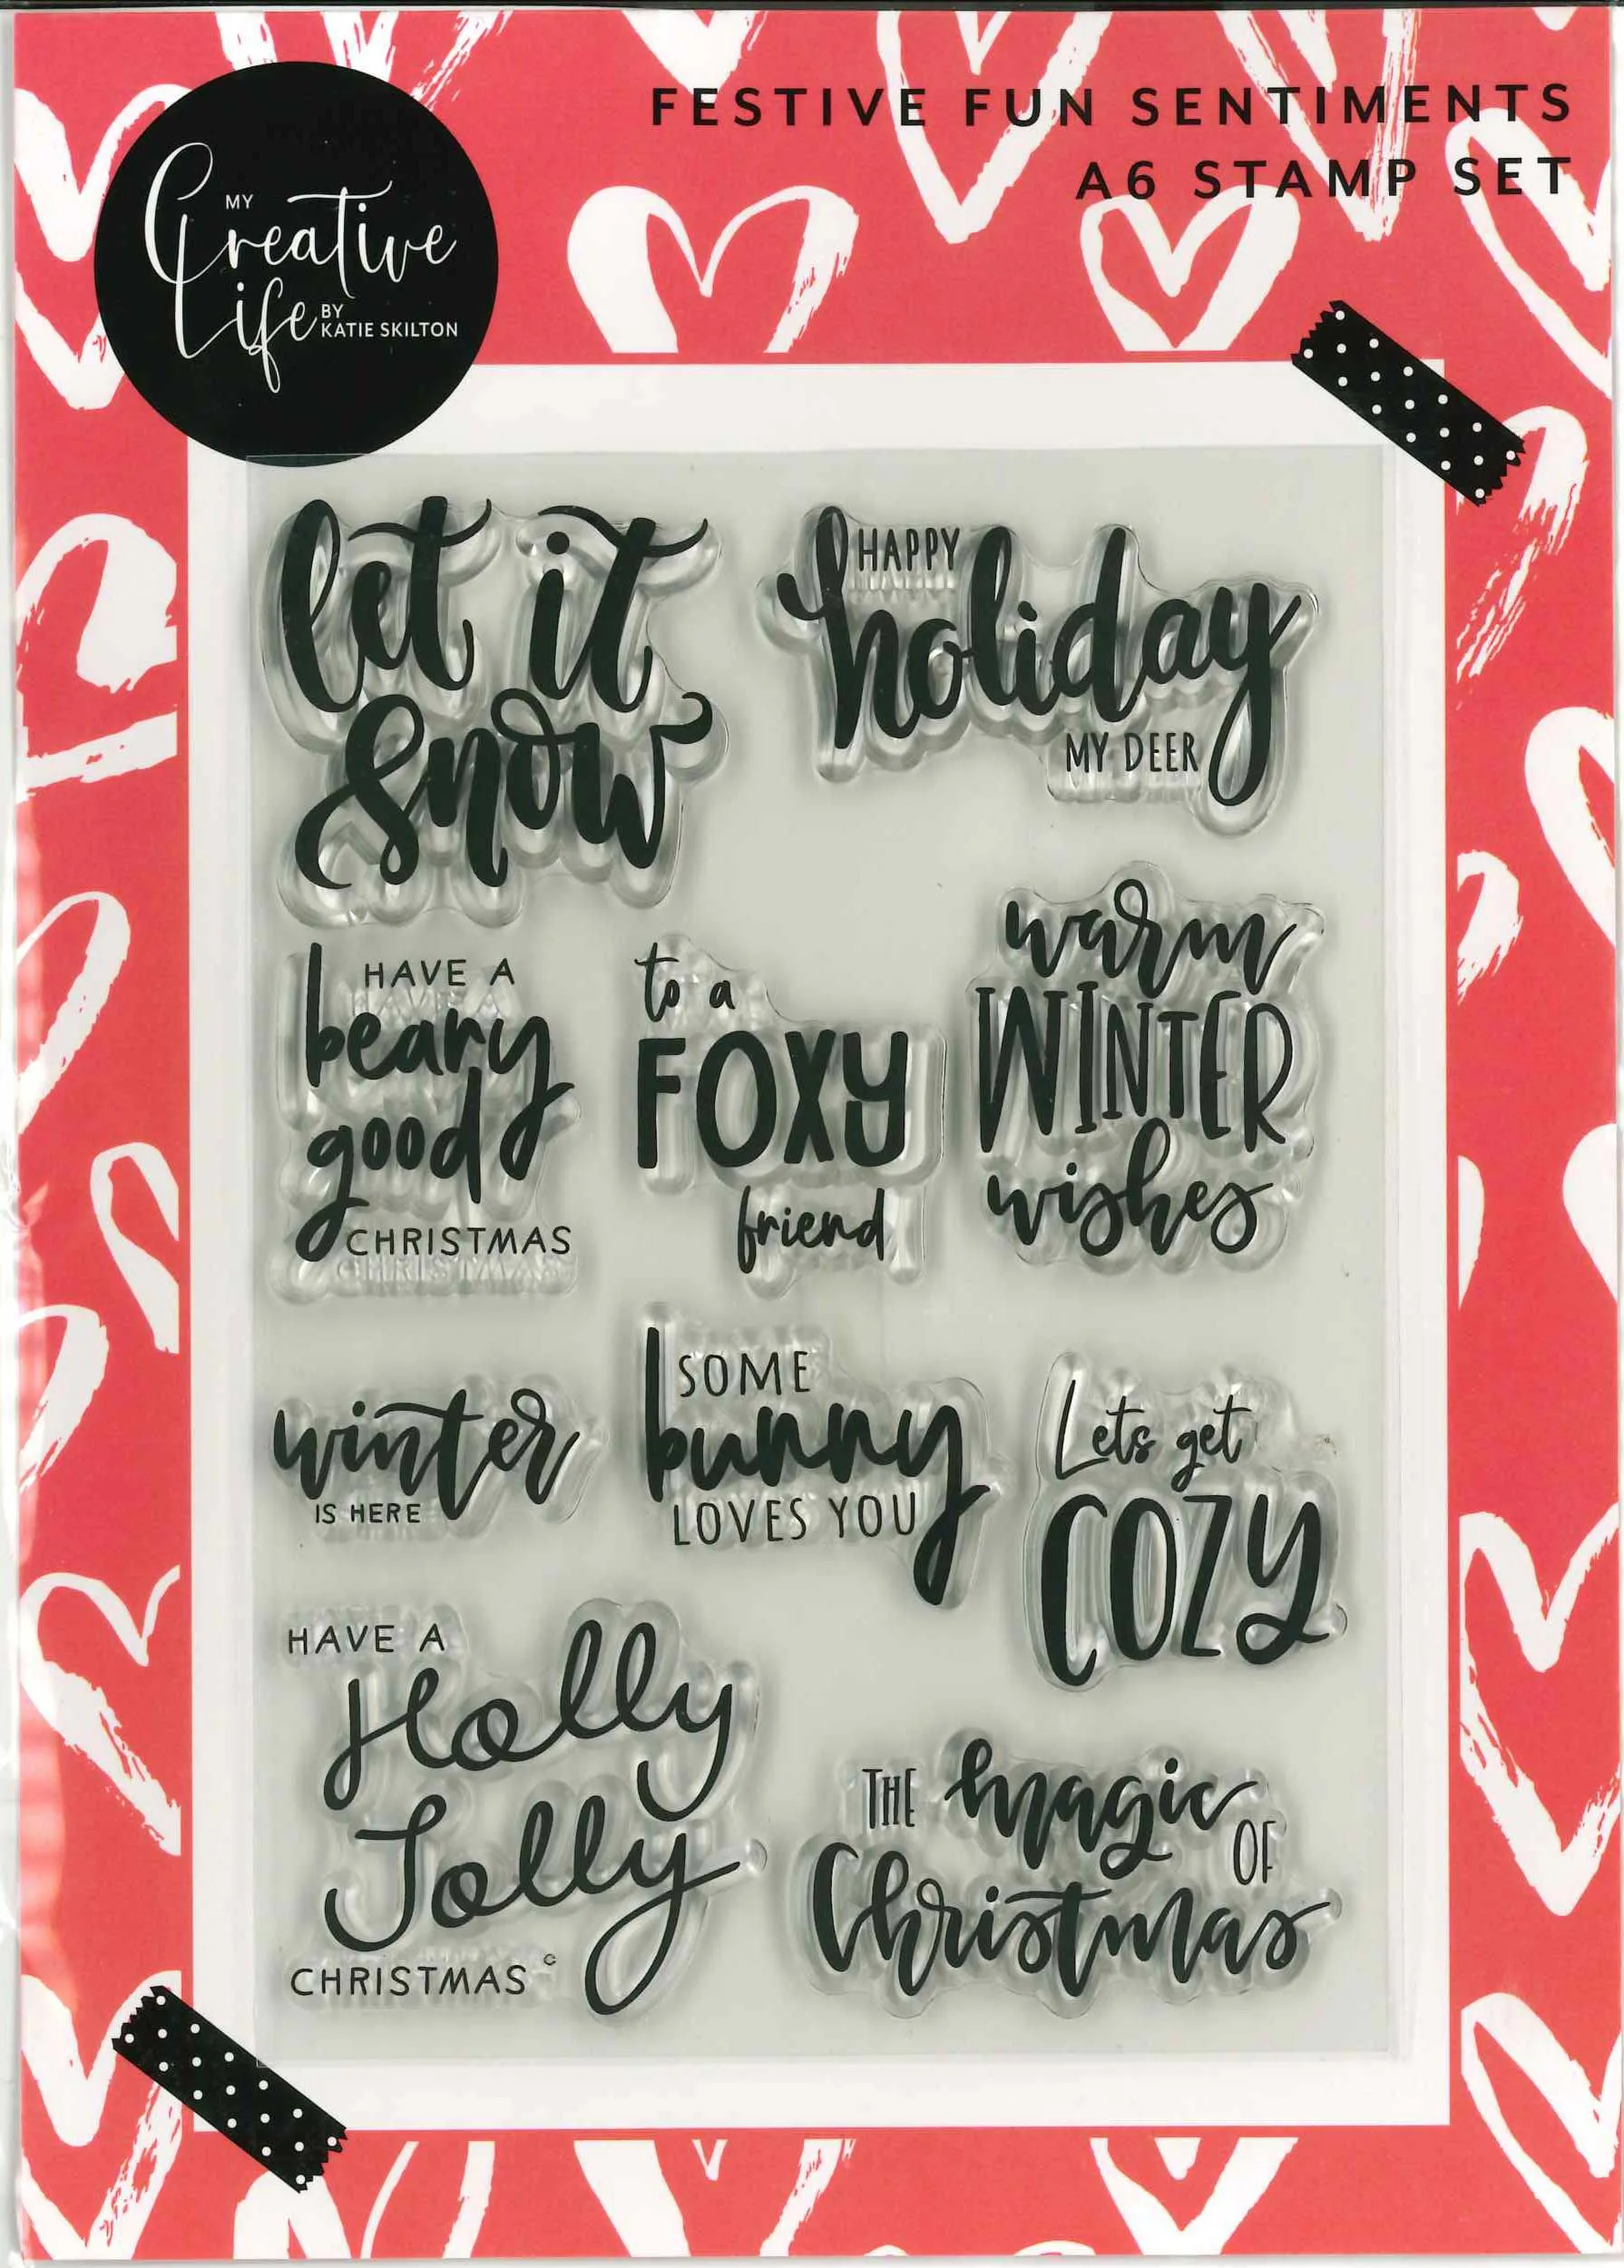 MY
Creative
Life
BY
KATIE SKILTON
FESTIVE FUN SENTIMENTS
A6 STAMP SET
let it
snow
HAPPY
holiday
MY DEER
HAVE A
beary
good
CHRISTMAS
to a
FOXY
friend
warm
WINTER
wishes
winter
IS HERE
SOME
bunny
LOVES YOU
Lets get
COZY
HAVE A
Holly
Jolly
CHRISTMAS
THE magic
OF
Christmas